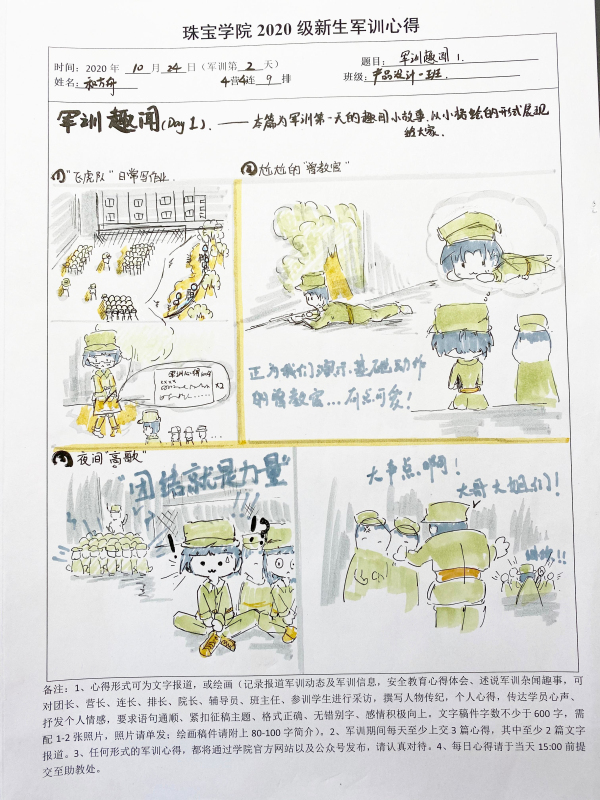 珠宝学院 2020 级新生军训心得
时间：2020 年 10 月 24 日（军训第 2 天） 题目：军训趣闻 1.
姓名： 4营4连 9 排 班级：产品设计一班.
军训趣闻(Day 1). ——本篇为军训第一天的趣闻小故事.以小插绘的形式展现
给大家.
①"飞虎队"日常写作业.
②尬尬的"曾教官"
军训心得
x2
正为我们演示基础动作
的曾教官...有点可爱!
③夜间"高歌"
"团结就是力量"
!!!
! !?
大声点啊!
大哥大姐们!
备注：1、心得形式可为文字报道，或绘画（记录报道军训动态及军训信息，安全教育心得体会、述说军训杂闻趣事，可
对团长、营长、连长、排长、院长、辅导员、班主任、参训学生进行采访，撰写人物传纪，个人心得，传达学员心声、
抒发个人情感，要求语句通顺、紧扣征稿主题、格式正确、无错别字、感情积极向上，文字稿件字数不少于 600 字，需
配 1-2 张照片，照片请单发；绘画稿件请附上 80-100 字简介）。2、军训期间每天至少上交 3 篇心得，其中至少 2 篇文字
报道。3、任何形式的军训心得，都将通过学院官方网站以及公众号发布，请认真对待。4、每日心得请于当天 15:00 前提
交至助教处。